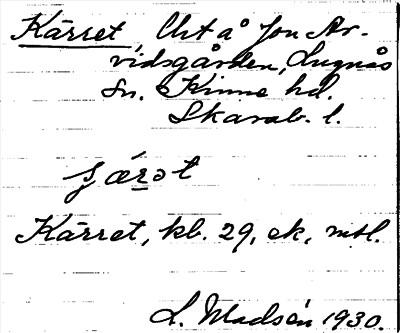 Kärret, Urt å Jon Ar-
vidsgården, Lugnås
Sn. Kinne hd.
Skarab. l.
ɟärət
Kärret, kb. 29, ek, mtl.
L. Madsén 1930.